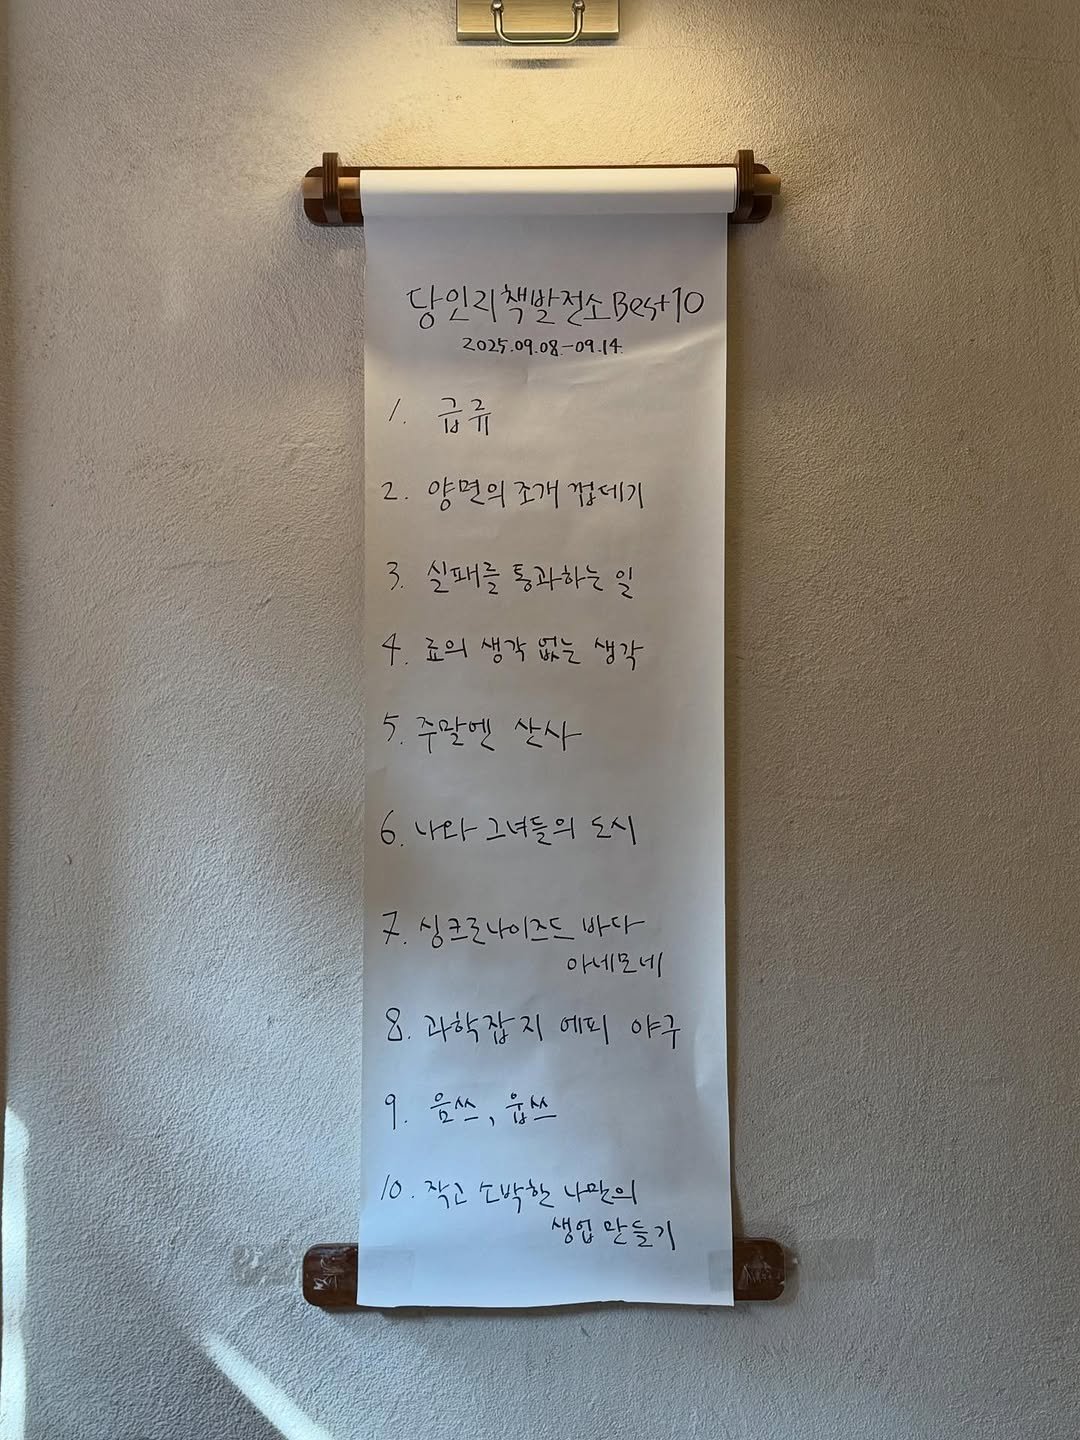 당인리책발전소 Best 10
2025.09.08.-09.14.
1. 급류
2. 양면의 조개 껍데기
3. 실패를 통과하는 일
4. 료의 생각 없는 생각
5. 주말엔 산사
6. 나와 그녀들의 도시
7. 싱크로나이즈드 바다
아네모네
8. 과학잡지 에피 야구
9. 음쓰, 웁쓰
10. 작고 소박한 나만의
생업 만들기